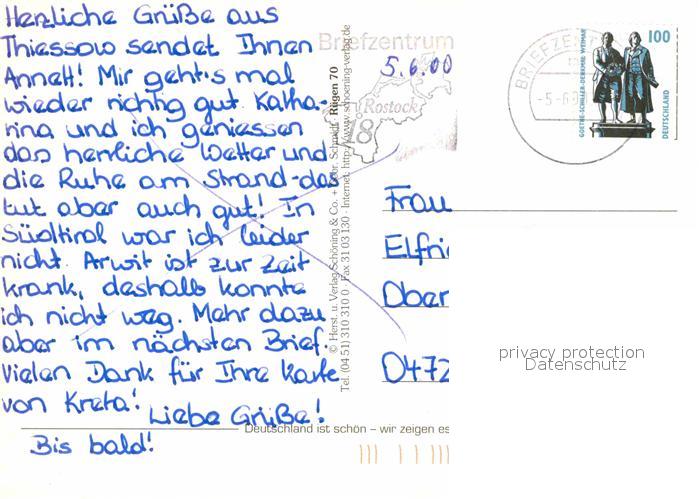 Herzliche Grüße aus
Thiessow sendet Ihnen
Annett! Mir geht's mal
wieder richtig gut. Katha-
rina und ich geniessen
das herrliche Wetter und
die Ruhe am Strand - das
tut aber auch gut! In
Südtirol war ich leider
nicht. Arwit ist zur Zeit
krank, deshalb konnte
ich nicht weg. Mehr dazu
aber im nächsten Brief.
Vielen Dank für Ihre Karte
von Kreta! Liebe Grüße!
Bis bald!
Rügen 70
© Herst. u. Verlag Schöning & Co. + Gebr. Schmidt
Tel. (04 51) 310 310 0 · Fax 31 03 130 · Internet: http://www.schoening-verlag.de
Briefzentrum
5.6.00
Rostock
18
BRIEFZENT
-5-6
100
GOETHE-SCHILLER-DENKMAL WEIMAR
DEUTSCHLAND
Frau
Elfri
Ober
0472
privacy protection
Datenschutz
Deutschland ist schön – wir zeigen es